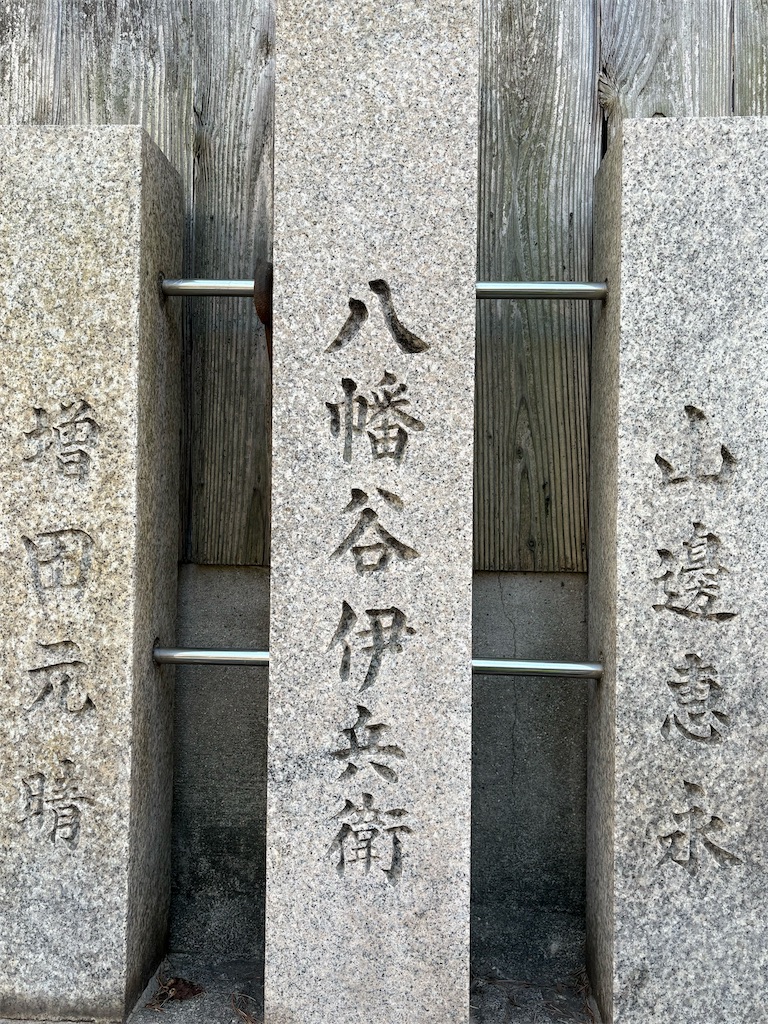 山邊惠永
八幡谷伊兵衛
増田元晴